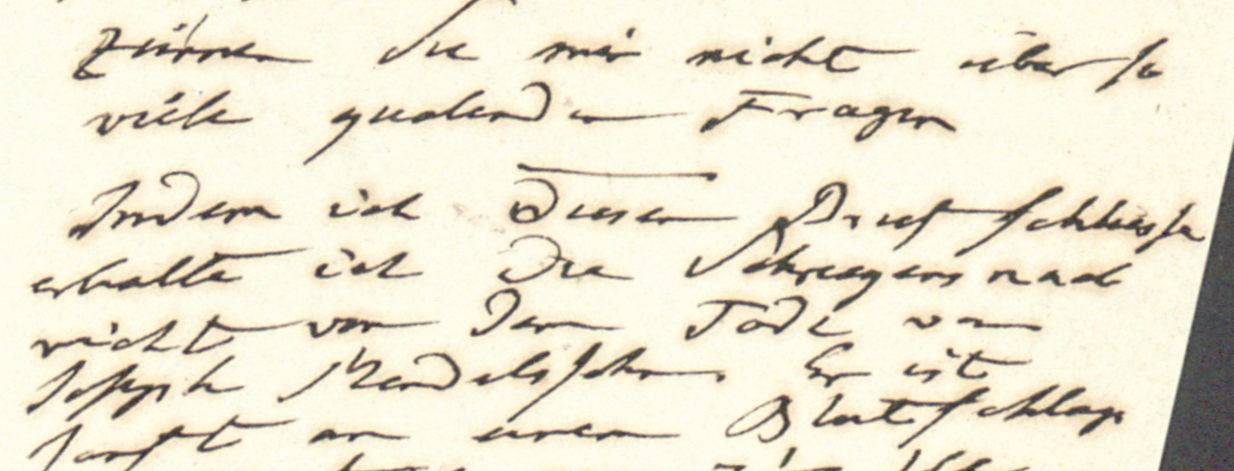 Zürnen Sie mir nicht über so
viele quälenden Fragen
Indem ich diesen Brief schliesse
erhalte ich die Schreckensnach
richt von dem Tode von
Joseph Mendelssohn. Er ist
sanft an einem Blutschlage